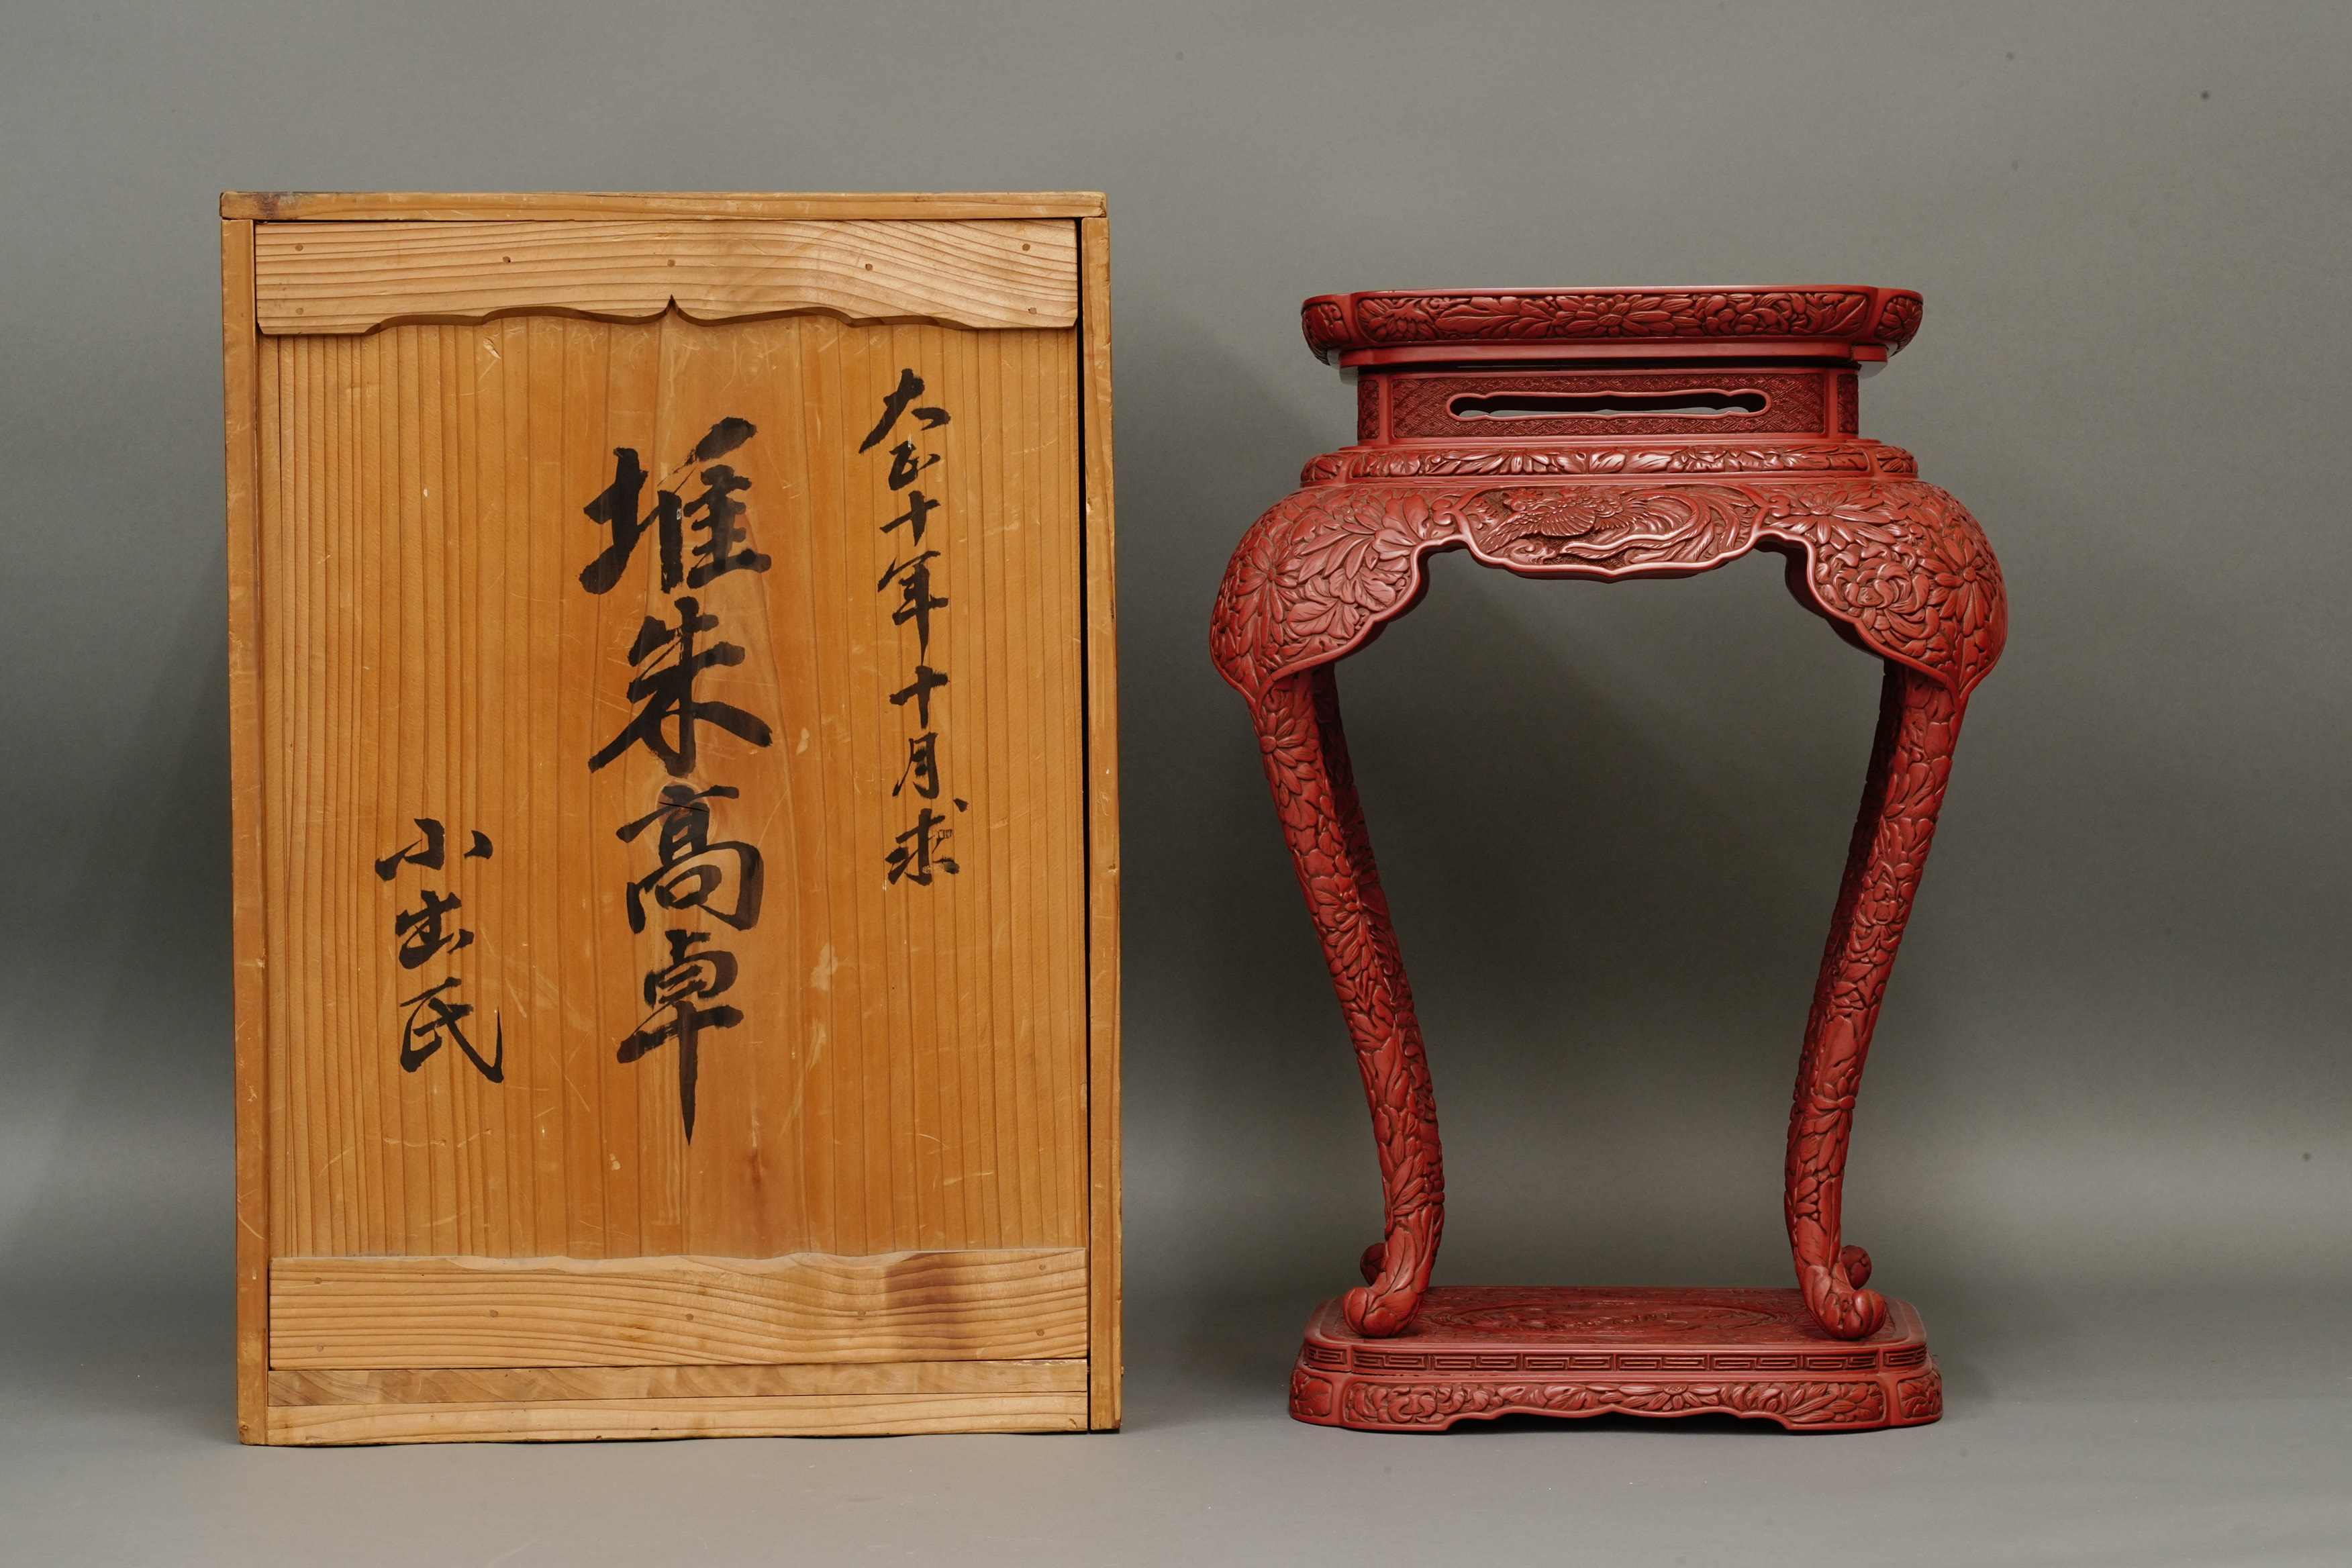 大正十年十月求
堆朱高卓
小出氏